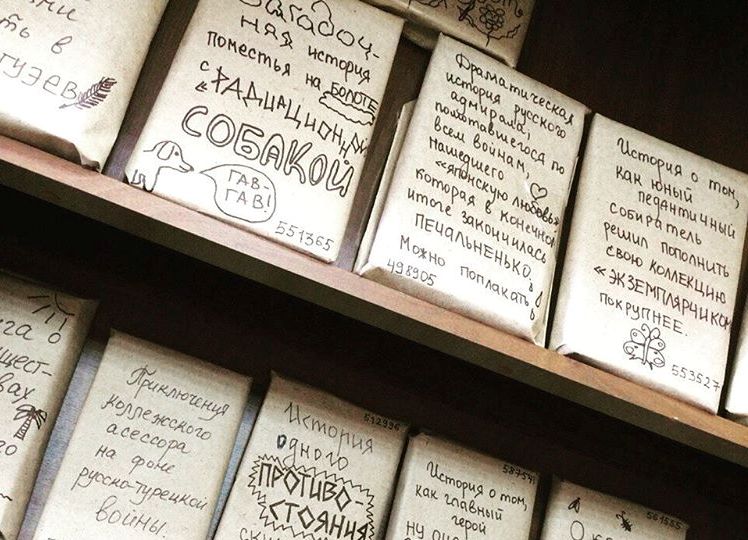 ть в
Загадоч-
ная история
поместья на болоте
с «радиационной
СОБАКОЙ
ГАВ-
ГАВ!
551365
Драматическая
история русского
адмирала,
помотавшегося по
всем войнам,
нашедшего
«японскую любовь»
которая в конечном
итоге закончилась
печальненько.
Можно поплакать
498905
История о том,
как юный
педантичный
собиратель
решил пополнить
свою коллекцию
«экземплярчиком
покрупнее.
553527
Приключения
коллежского
асессора
на фоне
русско-турецкой
войны.
512996
История
одного
ПРОТИВО-
СТОЯНИЯ
История о том,
как главный
герой
561555